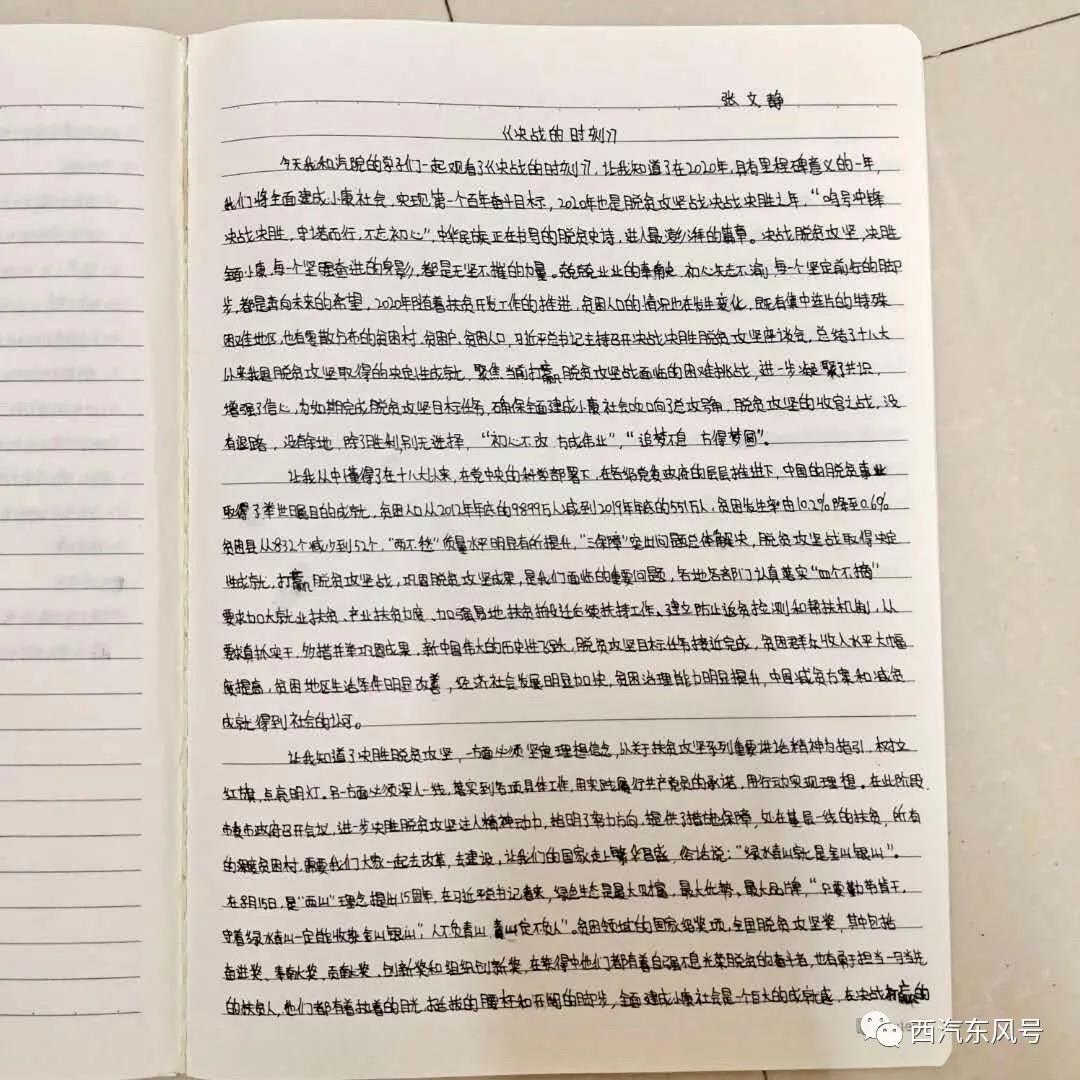 张文静
《决战的时刻》
今天我和汽院的学子们一起观看了《决战的时刻》,让我知道了在2020年,具有里程碑意义的一年,
我们将全面建成小康社会,实现第一个百年奋斗目标,2020年也是脱贫攻坚战决战决胜之年,“鸣号冲锋
决战决胜,守诺而行,不忘初心”,中华民族正在书写的脱贫史诗,进入最澎湃的篇章。决战脱贫攻坚,决胜
全面小康,每一个坚强奋进的身影,都是无坚不摧的力量。兢兢业业的奉献 初心矢志不渝,每一个坚定前与的脚
步,都是奔向未来的希望,2020年随着扶贫开发工作的推进,贫困人口的情况也在发生变化,既有集中连片的特殊
困难地区,也有零散分布的贫困村,贫困户,贫困人口,习近平总书记主持召开决战决胜脱贫攻坚座谈会,总结了十八大
以来我国脱贫攻坚取得的决定性成就,聚焦当前打赢脱贫攻坚战面临的困难挑战,进一步凝聚了共识,
增强了信心,为如期完成脱贫攻坚目标任务,确保全面建成小康社会吹响了总攻号角,脱贫攻坚的收官之战,没
有退路,没余地,除了胜利别无选择,“初心不改 方成伟业”,“追梦不息 方得梦圆”。
让我从中懂得了在十八大以来,在党中央的科学部署下,在各级党负政府的层层推进下,中国的脱贫事业
取得了举世瞩目的成就,贫困人口从2012年年底的9899万人减到2019年年底的551万人,贫困发生率由10.2%降至0.6%
贫困县从832个减少到52个,“两不愁”质量水平明显有所提升,“三保障”突出问题总体解决,脱贫攻坚战取得决定
性成就,打赢脱贫攻坚战,巩固脱贫攻坚成果,是我们面临的重要问题,各地各部门认真落实“四个不摘”
要求加大就业扶贫、产业扶贫力度、加强易地扶贫搬迁后续扶持工作、建立防止返贫检测和帮扶机制,从
要求真抓实干,多措并举巩固成果,新中国伟大的历史性飞跃,脱贫攻坚目标任务接近完成,贫困群众收入水平大幅
度提高,贫困地区生活条件明显改善,经济社会发展明显加快,贫困治理能力明显提升,中国减贫方案和减贫
成就得到社会的认可。
让我知道了决胜脱贫攻坚,一方面必须坚定理想信念,从关于扶贫攻坚系列重要讲话精神为指引,树立
红旗,点亮明灯,另一方面必须深入一线,落实到各项具体工作,用实践履行共产党员的承诺,用行动实现理想。在此阶段
市委市政府召开会议,进一步决胜脱贫攻坚注入精神动力,指明了努力方向,提供了措施保障,处在基层一线的扶贫,所有
的深度贫困村,需要我们大家一起去改革,去建设,让我们的国家走上繁华昌盛,俗话说:“绿水青山就是金山银山”。
在8月15日,是“两山”理念提出15周年,在习近平书记看来,绿色生态是最大财富、最大优势、最大品牌,“只要勤劳肯干,
守着绿水青山一定能收获金山银山”;人不负青山 青山定不负人”。贫困领域的国家级奖项,全国脱贫攻坚奖,其中包括
奋进奖、奉献奖、贡献奖、创新奖和组织创新奖,在获得中他们都有着自强不息光荣脱贫的奋斗者,也有勇于担当一马当先
的扶贫人,他们都有着执着的目光,挺拔的腰杆和开阔的脚步,全面建成小康社会是一个巨大的成就感,在决战打赢的
西汽东风号